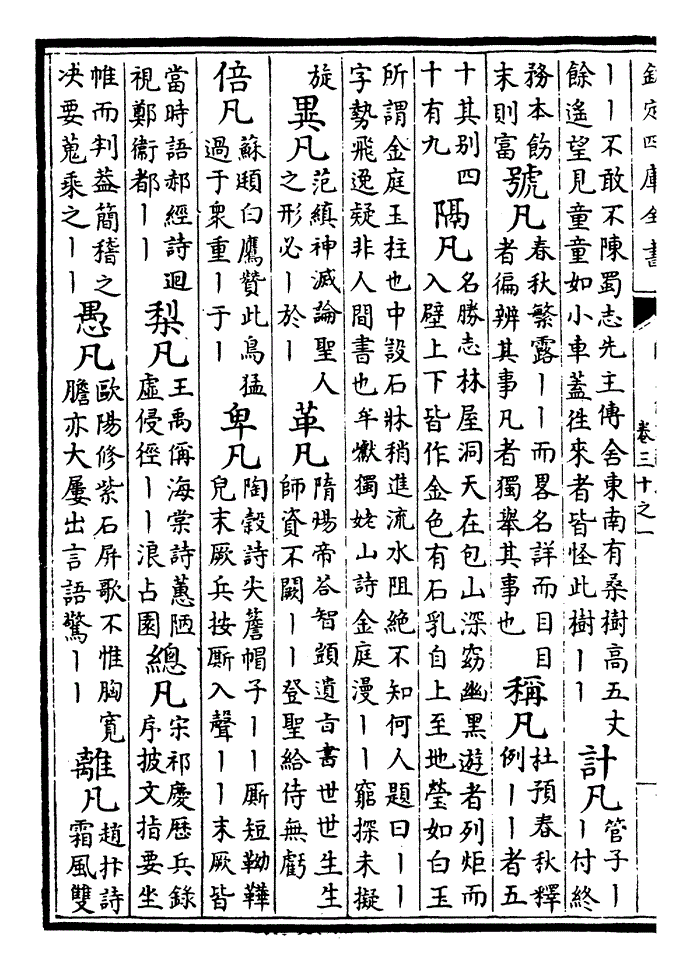 欽定四庫全書
卷三十之一
丨丨不敢不陳蜀志先主傳舍東南有桑樹高五丈餘遙望見童童如小車蓋徃來者皆怪此樹丨丨計凡管子丨丨付終
務本飭末則富號凡春秋繁露丨丨而畧名詳而目目者徧辨其事凡者獨舉其事也稱凡杜預春秋釋例丨丨者五
十其别四十有九隔凡名勝志林屋洞天在包山深窈幽黑遊者列炬而入壁上下皆作金色有石乳自上至地瑩如白玉
所謂金庭玉柱也中設石牀稍進流水阻絶不知何人題曰丨丨字勢飛逸疑非人間書也牟巘獨姥山詩金庭漫丨丨窮探未擬
旋異凡范縝神滅論聖人之形必丨於丨革凡隋煬帝答智顗遺旨書世世生生師資不闕丨丨登聖給侍無虧
倍凡蘇頲白鷹贊此鳥猛過于衆重丨于丨卑凡陶穀詩尖簷帽子丨丨厮短靿鞾兒末厥兵按厮入聲丨丨末厥皆
當時語郝經詩迴視鄭衛都丨丨梨凡王禹偁海棠詩蕙陋虛侵徑丨丨浪占園總凡宋祁慶厯兵錄序披文指要坐
帷而判葢簡稽之决要蒐乘之丨丨愚凡歐陽修紫石屏歌不惟胸寬膽亦大屢出言語驚丨丨離凡趙抃詩霜風雙